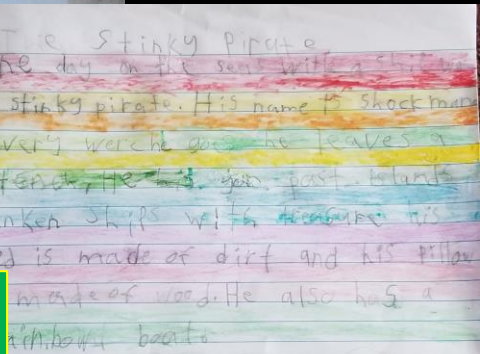 The Stinky Pirate
he day on the seas with a ship was
stinky pirate. His name is Shockmane
very werche he leaves a
He past
nken ships with treasure his
ed is made of dirt and his pillow
made of wood. He also has a
ainbowl boat.